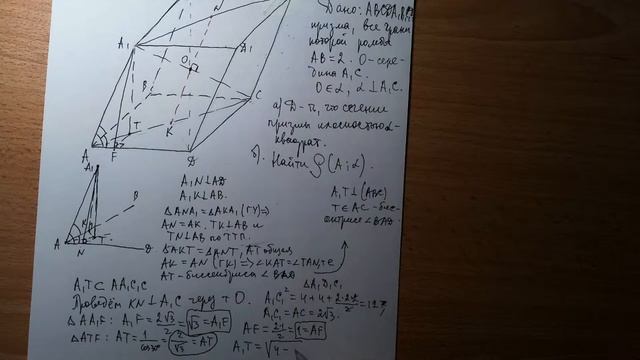 Дано: ABCDA₁B₁
призма, все грани
которой ромбы
AB = 2. O - сере-
дина A₁C.
O ∈ α, α ⊥ A₁C.
а) Д-ть, что сечение
призмы плоскостью α -
квадрат.
б). Найти ρ(A; α)
A₁
A₁
O
B
C
T
K
A
F
D
A₁
B
A
N
T
D
A₁N⊥AD
A₁K⊥AB.
ΔANA₁ = ΔAKA₁ (ГУ) =>
AN = AK. TK⊥AB и
TN⊥AB по ТТП.
ΔAKT = ΔANT, AT общая
AK = AN (ГК) => ∠KAT = ∠TAN, т.е
AT - биссектриса ∠BAD
A₁T⊥(ABC)
T∈AC - бис-
ектрисе ∠BAD
A₁T ⊂ AA₁C₁C
Проведём KN⊥A₁C через т O.
ΔAA₁F: A₁F = 2√3/2 = √3 = A₁F
ΔATF: AT = 1/cos30° = 2/√3 = AT
ΔA₁D₁C₁
A₁C₁² = 4 + 4 + 2·2·2/2 = 12
A₁C₁ = AC = 2√3.
AF = 2·1/2 = 1 = AF
A₁T = √4 -